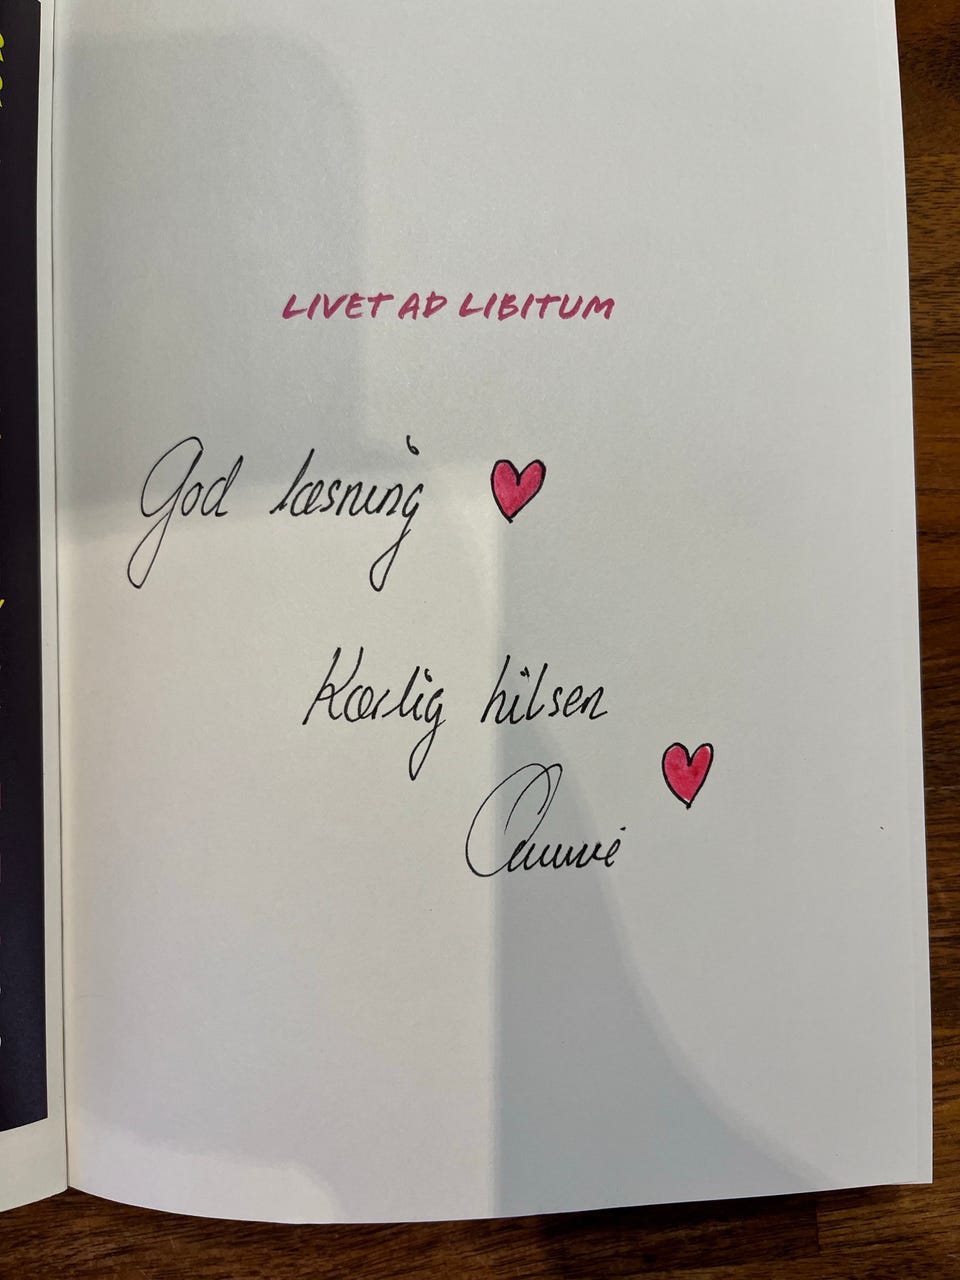 LIVET AD LIBITUM
God læsning
Kærlig hilsen